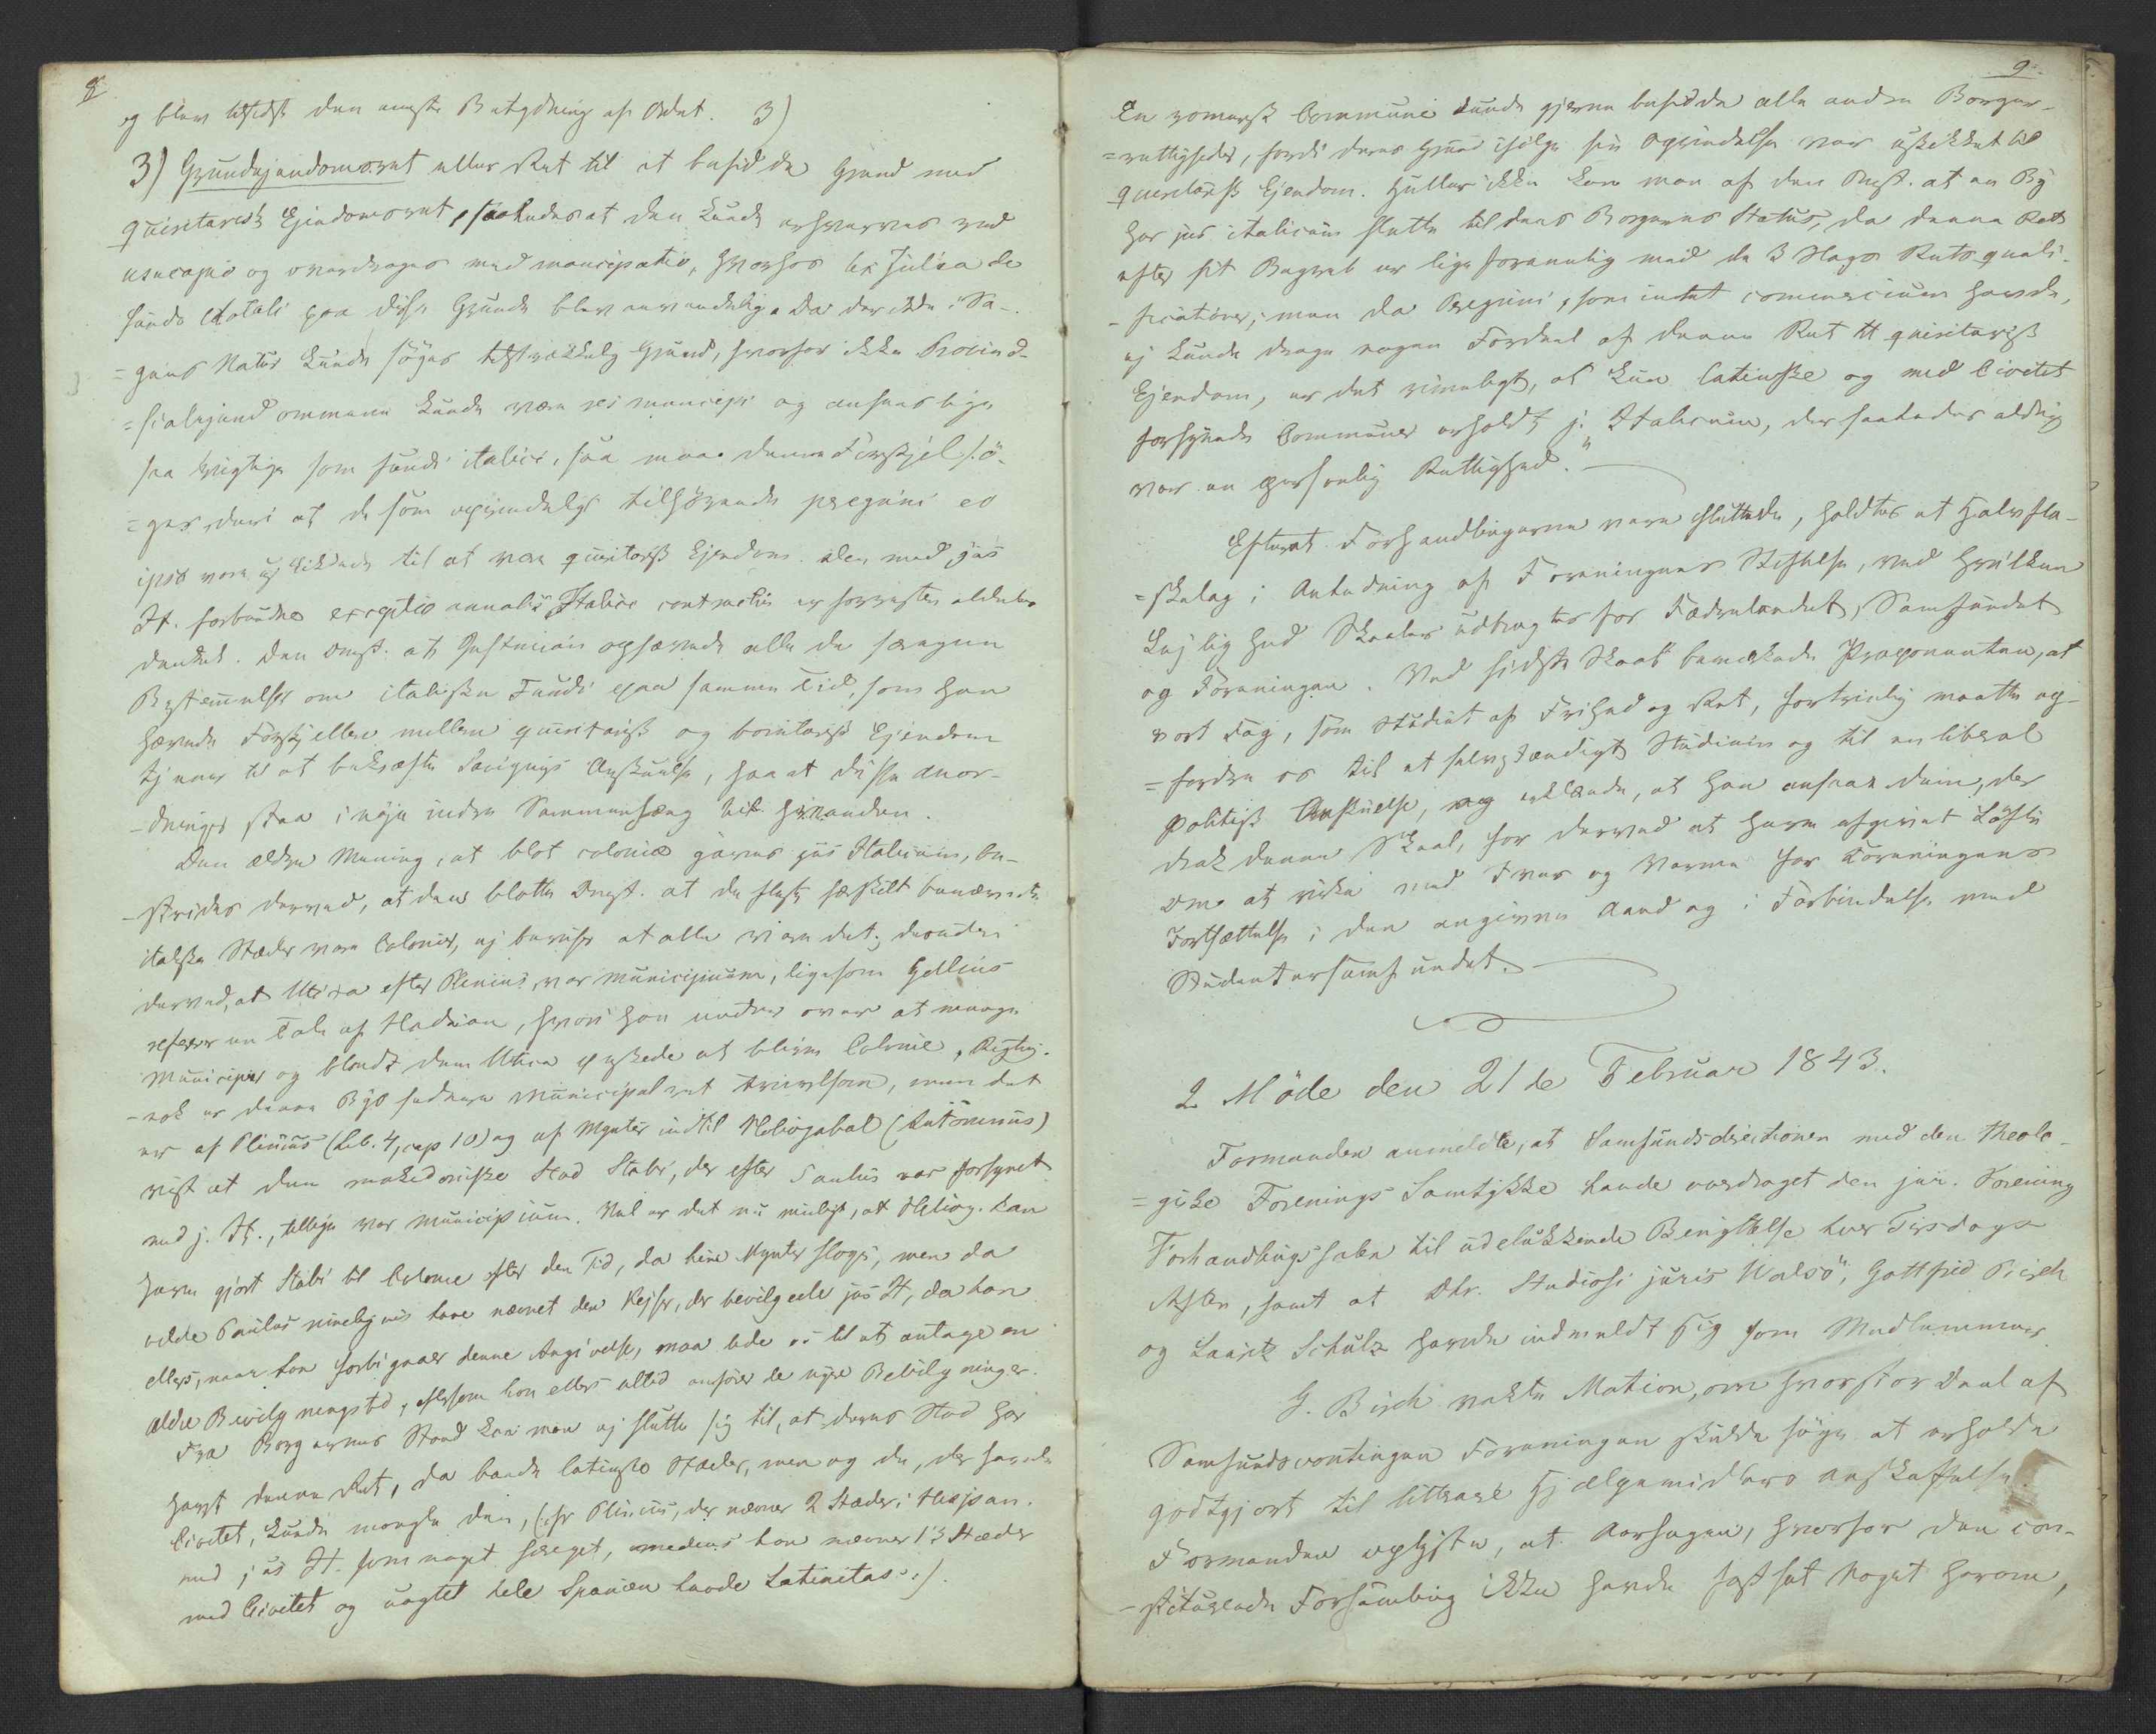 8.
og blev tilsidst den eneste Betydning af Ordet. 3)
3) Grundejendomsret eller Ret til at besidde Grund med
quiritarisk Ejendomsret, saaledes at den kunde erhverves ved
usucapio og overdrages med mancipatio, hvorhos lex Julia de
fundo dotali paa disse Grunde blev anvendelig. Da der ikke i Sa-
=gens Natur kunde søges tilstrækkelig Grund, hvorfor ikke Provind-
=sialejendommene kunde være res mancipi og ansees lige
saa vigtige som fundi italici, saa maa denne Forskjel sö-
=ges deri at de som oprindeligt tilhørende peregrini eo
ipso vare uskikkede til at være quiritarisk Ejendom. Den med jus
It. forbundne exceptio annalis Italici contractus er forresten aldeles
dunkel. Den Omst. at Justinian ophævede alle de særegne
Bestemmelser om italiske Fundi paa samme Tid, som han
hævede Forskjellen mellem quiritarisk og bonitarisk Ejendom
tjener til at bekræfte Savignys Anskuelse, saa at disse Anor-
-dninger staa i nøje indre Sammenhæng til hinanden.
Den ældre Mening, at blot coloniæ gaves jus Italicum, be-
-strides derved, at den blotte Omst. at de fleste særskilt benævnte
italske Stæder vare Colonier, ej beviser at alle vare det; desuden
derved, at Utica efter Plinius, var Municipium, ligesom Gellius
referer en Tale af Hadrian, hvori han undres over at mange
Municipier og blandt dem Utica ønskede at blive Colonie. Rigtig-
-nok er denne Bys sednere Municipalret tvivlsom, men det
er af Plinius (Lib. 4, cap 10) og af Mynter indtil Heliogabal (Antoninus)
vist at den makedoniske Stad Stobi, der efter Paulus var forsynet
med j. It., tillige var Municipium. Vel er det nu muligt, at Heliog. kan
have gjort Stobi til Colonie efter den Tid, da hine Mynter sloges, men da
vilde Paulus rimeligvis have nævnet den Kejser, der bevilgede jus It, da han
ellers, naar han forbigaaer denne Angivelse, maa lede os til at antage en
ældre Bevilgningstid, eftersom han ellers altid anfører de nyere Bevilgninger.
Fra Borgernes Stand kan man ej slutte sig til, at deres Stad har
havt denne Ret, da baade latinske Stæder, men og de, der havde
Civitet, kunde mangle den, (cfr Plinius, der nævner 2 Stæder i Hispan.
med jus It. som noget særeget, medens han nævner 13 Stæder
med Civitet og uagtet hele Spanien havde Latinitas.)
9.
En romersk Commune kunde gjerne besidde alle andre Borger-
=rettigheder, fordi deres Grund ifölge sin Oprindelse var uskikket til
quiritarisk Ejendom. Hellere ikke kan man af den Omst. at en By
har jus italicum slutte til dens Borgeres Status, da denne Ret
efter sit Begreb er lige forenelig med de 3 Slags Retsquali-
-ficationer; men da Peregrini, som intet commercium havde,
ej kunde drage nogen Fordeel af denne Ret til quiritarisk
Ejendom, er det rimeligt, at kun latinske og med Civitet
forsynede Communer erholdt j. Italicum, der saaledes aldrig
var en personlig Rettighed."
Efterat Forhandlingerne vare sluttede, holdtes et Hjalvfla-
=skelag i Anledning af Foreningens Stiftelse, ved hvilken
Lejlighed Skaaler udbragtes for Fædrelandet, Samfundet
og Foreningen. Ved sidste Skaal bemærkede Proponenten, at
vort Fag, som Studiet af Frihed og Ret, fortrinlig maatte op-
=fordre os til et selvstændigt Studium og til en liberal
politisk Anskuelse, og erklærede, at han ansaae dem, der
drak denne Skaal, for derved at have afgivet Löfte
om at virke med Iver og Varme for Foreningens
Fortsættelse i den angivne Aand og i Forbindelse med
Studentersamfundet.
2 Möde den 21de Februar 1843.
Formanden anmeldte, at Samfundsdirectionen med den theolo-
=giske Forenings Samtykke havde overdraget den jur. Forening
Forhandlingssalen til udelukkende Benyttelse hver Tirsdags
Aften, samt at DHr. Studiosi juris Walsö, Gottfried Birch
og Lauritz Schulz havde indmeldt sig som Medlemmer
G. Birch vakte Motion, om hvorstor Deel af
Samfundscontingen Foreningen skulde søge at erholde
godtgjort til litterære Hjælpemidlers Anskaffelse.
Formanden oplyste, at Aarsagen, hvorfor den con-
-stituerende Forsamling ikke havde fastsat Noget herom,